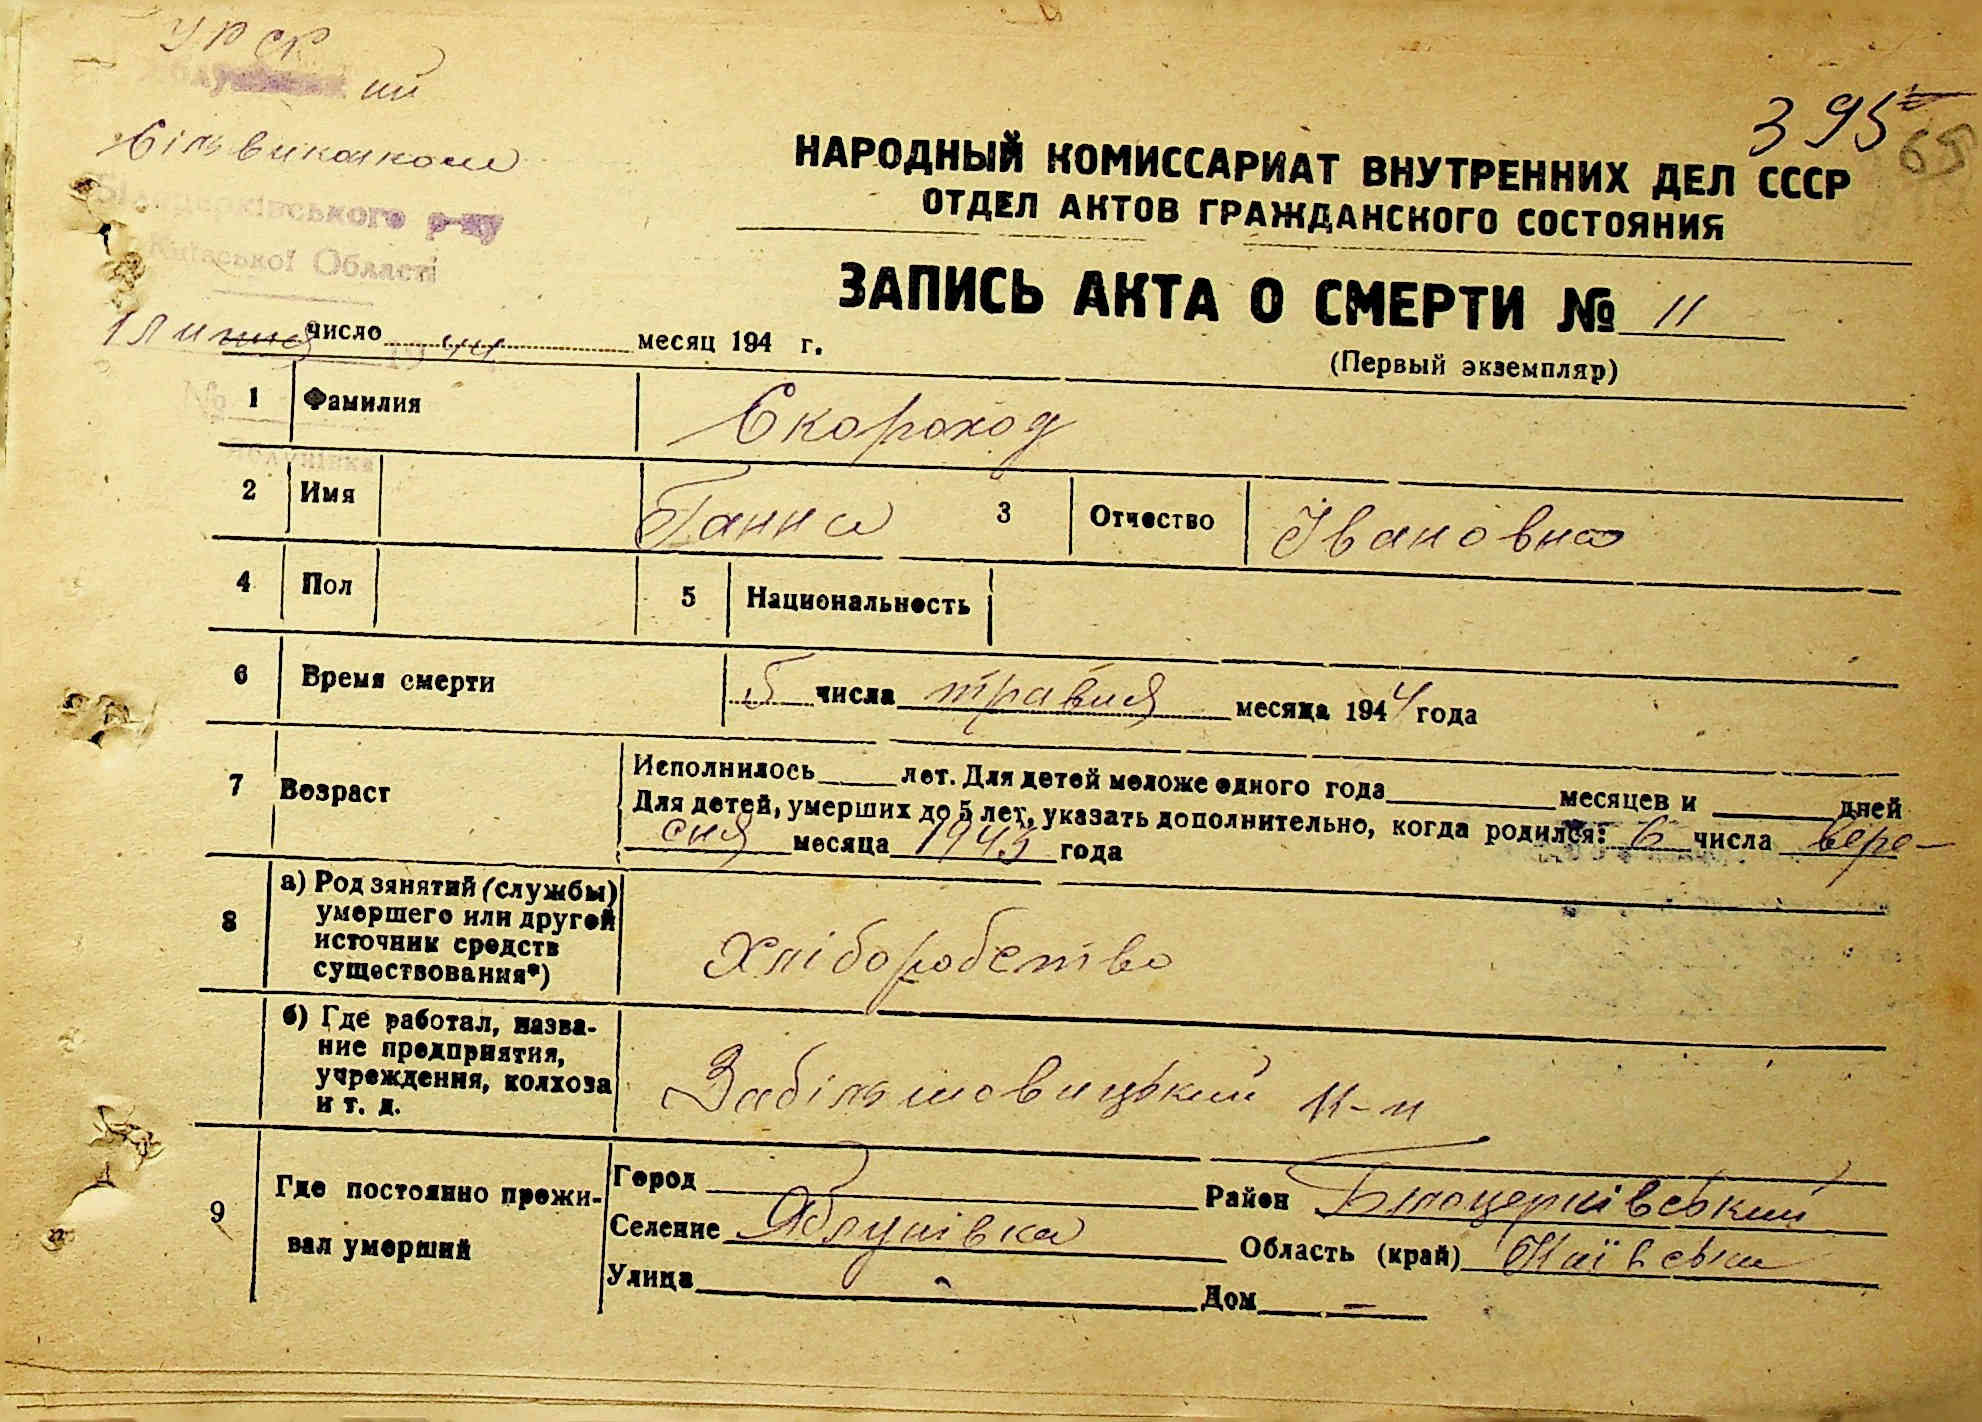 УРСР
ий
сільвиконком
Білоцерківського р-ну
Київської Області
395
65
НАРОДНЫЙ КОМИССАРИАТ ВНУТРЕННИХ ДЕЛ СССР
ОТДЕЛ АКТОВ ГРАЖДАНСКОГО СОСТОЯНИЯ
ЗАПИСЬ АКТА О СМЕРТИ № 11
(Первый экземпляр)
1 липня число 1944 месяц 194 г.
№
Яблунівка
1 Фамилия Скороход
2 Имя Ганна 3 Отчество Івановна
4 Пол 5 Национальность
6 Время смерти 5 числа травня месяца 1944 года
7 Возраст Исполнилось лет. Для детей моложе одного года месяцев и дней
Для детей, умерших до 5 лет, указать дополнительно, когда родился: 6 числа вере-
сня месяца 1943 года
8 а) Род занятий (службы)
умершего или другой
источник средств
существования*)
Хліборобство
б) Где работал, назва-
ние предприятия,
учреждения, колхоза
и т. д.
к-п
9 Где постоянно прожи-
вал умерший
Город Район Білоцерківський
Селение Яблунівка Область (край) Київська
Улица - Дом -